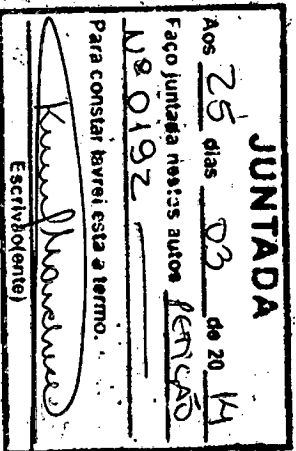 JUNTADA
Aos 25 dias 03 de 20 14
Faço juntada nestes autos PETIÇÃO
Nº 0192
Para constar lavrei esta a termo.
Escrivão(ente)